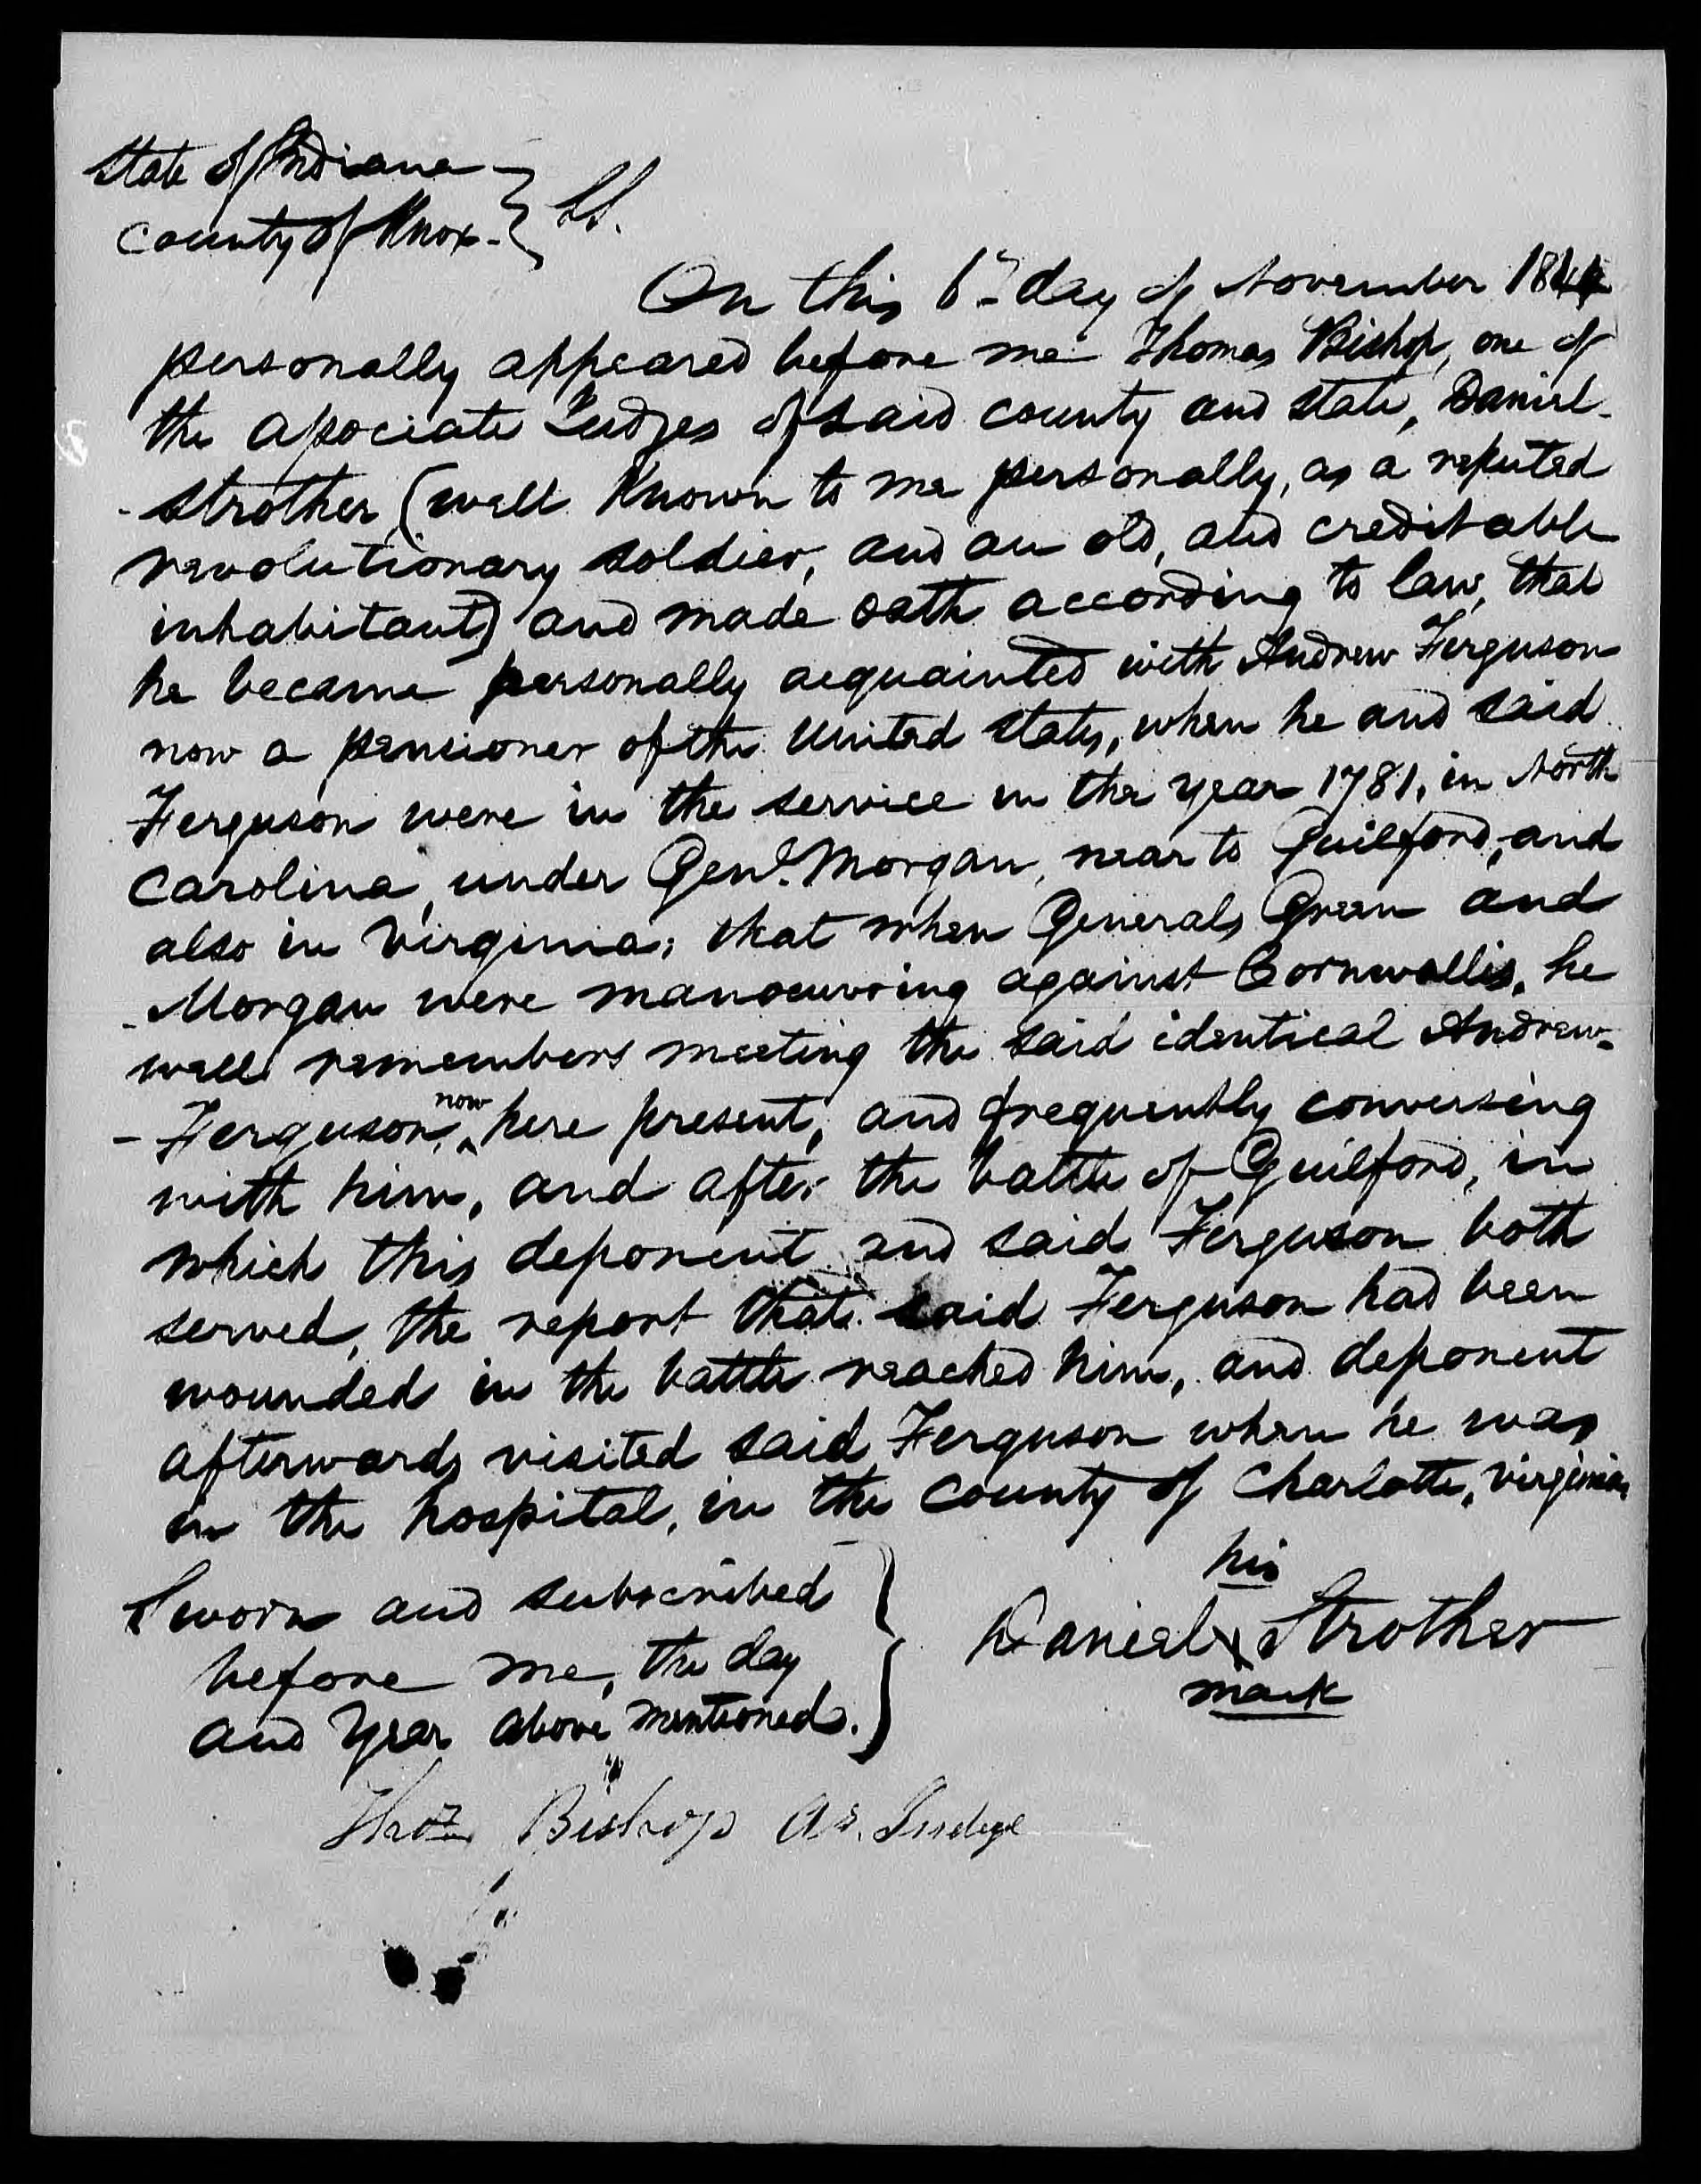 State of Indiana
County of Knox. } SS.
On this 6th day of November 1844
personally appeared before me Thomas Bishop, one of
the associate Judges of said county and state, Daniel
Strother (well known to me personally, as a reputed
revolutionary soldier, and an old, and creditable
inhabitant) and made oath according to law, that
he became personally acquainted with Andrew Ferguson
now a pensioner of the United States, when he and said
Ferguson were in the service in the year 1781, in North
Carolina, under Genl. Morgan, near to Guilford, and
also in Virginia; that when Generals Green and
Morgan were manoeuvring against Cornwallis, he
well remembers meeting the said identical Andrew
Ferguson, now here present, and frequently conversing
with him, and after the battle of Guilford, in
which this deponent and said Ferguson both
served, the report that said Ferguson had been
wounded in the battle reached him, and deponent
afterwards visited said Ferguson when he was
in the hospital, in the county of Charlotte, Virginia,
Sworn and subscribed
before me, the day
and Year above mentioned. }
his
Daniel X Strother
mark
Thos Bishop As. Judge